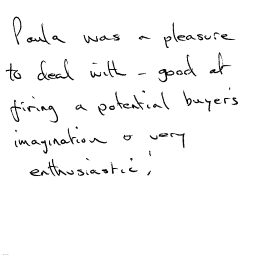 Paula was a pleasure
to deal with - good at
firing a potential buyer's
imagination & very
enthusiastic!